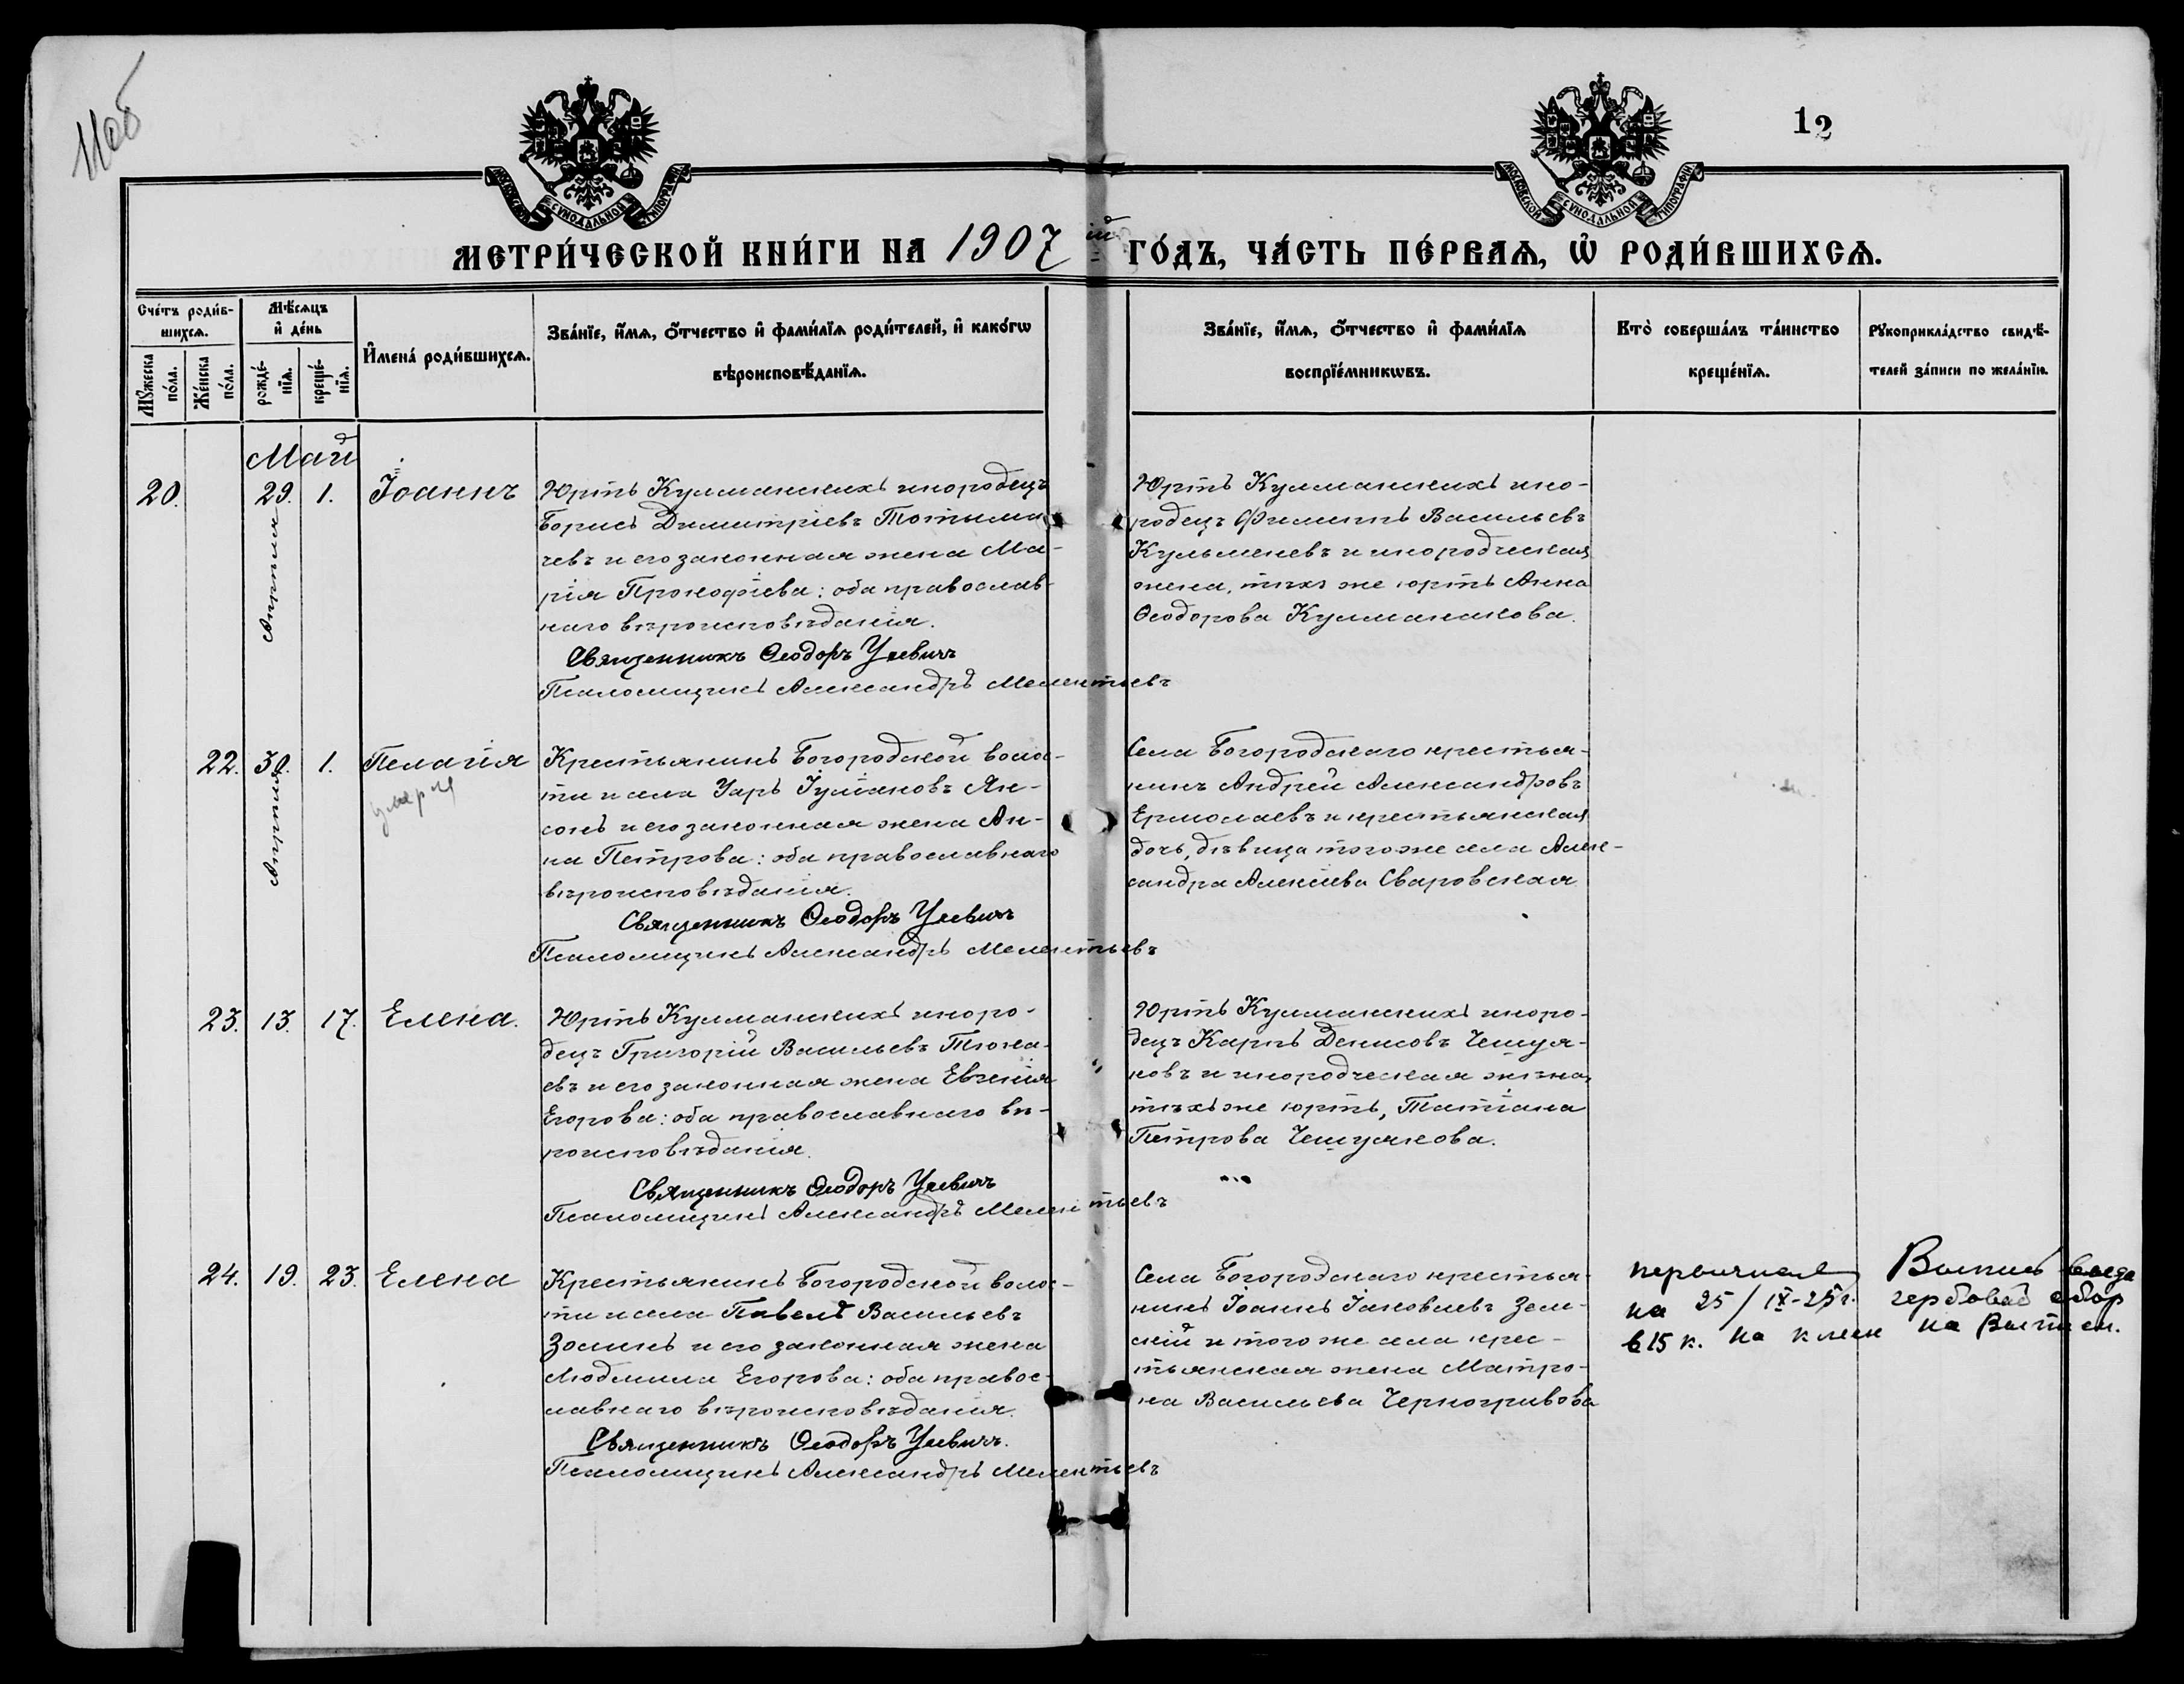 11об
12
МОСКОВСКОЙ СѴНОДАЛЬНОЙ ТИПОГРАФІИ
МОСКОВСКОЙ СѴНОДАЛЬНОЙ ТИПОГРАФІИ
МЕТРИ́ЧЕСКОЙ КНИ́ГИ НА 1907 ій ГО́ДЪ, ЧА́СТЬ ПЕ́РВАѦ, Ѽ РОДИ́ВШИХСѦ.
Сче́тъ роди́в-
шихсѧ.
Мꙋ́жеска по́ла.
Же́нска по́ла.
Мѣ́сѧцъ и҆ де́нь
рожде́-нїѧ.
креще́-нїѧ.
И҆мена̀ роди́вшихсѧ.
Зва́нїе, и҆́мѧ, о҆́тчество и҆ фами́лїѧ роди́телей, и҆ како́гѡ
вѣроисповѣ́данїѧ.
Зва́нїе, и҆́мѧ, о҆́тчество и҆ фами́лїѧ
воспрїе́мникѡвъ.
Кто̀ соверша́лъ та́инство
креще́нїѧ.
Рꙋкоприкла́дство свидѣ́-
телей за́писи по жела́нїю.
Май
20. 29. 1. Іоаннъ
Апрѣля
Юртъ Кулманскихъ инородецъ
Борисъ Димитріевъ Тотыма
чевъ и его законная жена Ма-
рія Прокофіева: оба православ-
наго вѣроисповѣданія.
Священникъ Ѳеодоръ Уневичъ
Псаломщикъ Александръ Мелентьевъ
Юртъ Кулманскихъ ино-
родецъ Филиппъ Васильевъ
Кульменевъ и инородческая
жена, тѣхъ же юртъ Анна
Ѳеодорова Кулманакова.
22. 30. 1. Пелагія
Апрѣля
умерла
Крестьянинъ Богородской волос-
ти и села Уаръ Іуліановъ Ян-
сонъ и его законная жена Ан-
на Петрова: оба православнаго
вѣроисповѣданія.
Священникъ Ѳеодоръ Уневичъ
Псаломщикъ Александръ Мелентьевъ
Села Богородскаго крестья-
нинъ Андрей Александровъ
Ермолаевъ и крестьянская
дочь, дѣвица того же села Алек-
сандра Алексіева Сваровская
23. 13. 17. Елена.
Юртъ Кулманскихъ иноро-
децъ Григорій Васильевъ Тюка-
евъ и его законная жена Евгенія
Егорова: оба православнаго вѣ-
роисповѣданія.
Священникъ Ѳеодоръ Уневичъ
Псаломщикъ Александръ Мелентьевъ
Юртъ Кулманскихъ иноро-
децъ Карпъ Денисовъ Чешуя-
ковъ и инородческая жена,
тѣхъ же юртъ, Татіана
Петрова Чешуякова.
24. 19. 23. Елена
Крестьянинъ Богородской волос-
ти и села Павелъ Васильевъ
Зоминъ и его законная жена
Людмила Егорова: оба правос-
лавнаго вѣроисповѣданія.
Священникъ Ѳеодоръ Уневичъ.
Псаломщикъ Александръ Мелентьевъ
Села Богородскаго крестья-
нинъ Іоаннъ Іаковлевъ Зем-
скій и того же села крес-
тьянская жена Матро-
на Васильева Черногривова
на 25/IX-25 г. гербовый сбор
в 15 к. на